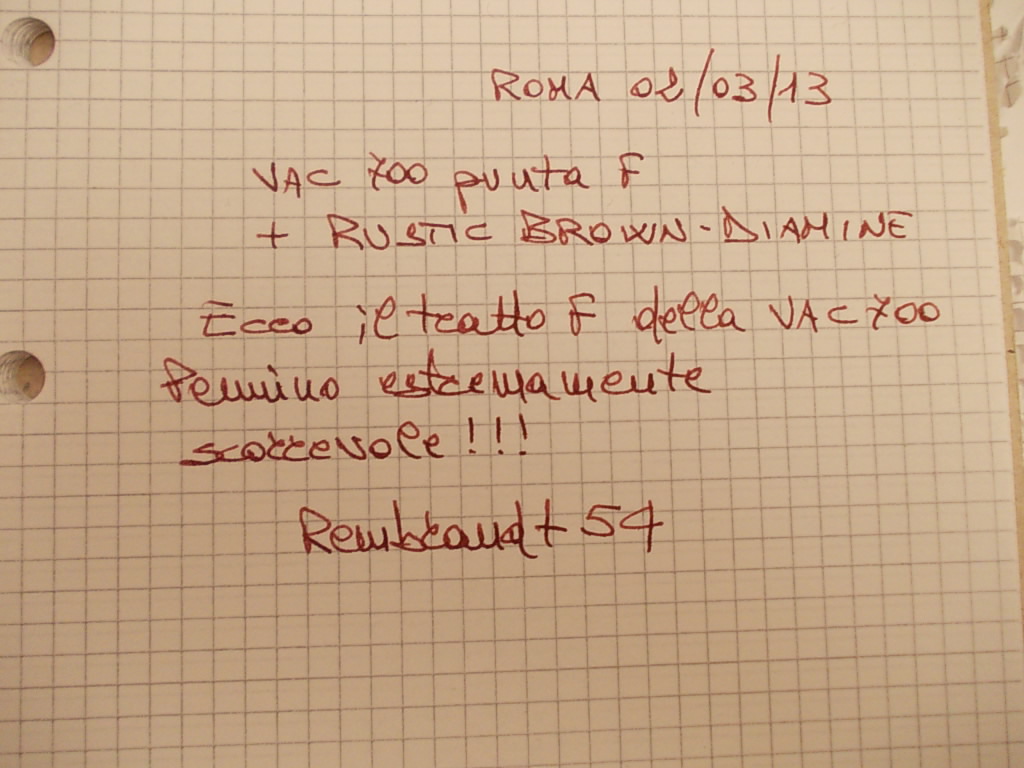 ROMA 02/03/13
VAC 700 punta F
+ RUSTIC BROWN - DIAMINE
Ecco il tratto F della VAC 700
Pennino estremamente
scorrevole!!!
Rembrandt 54